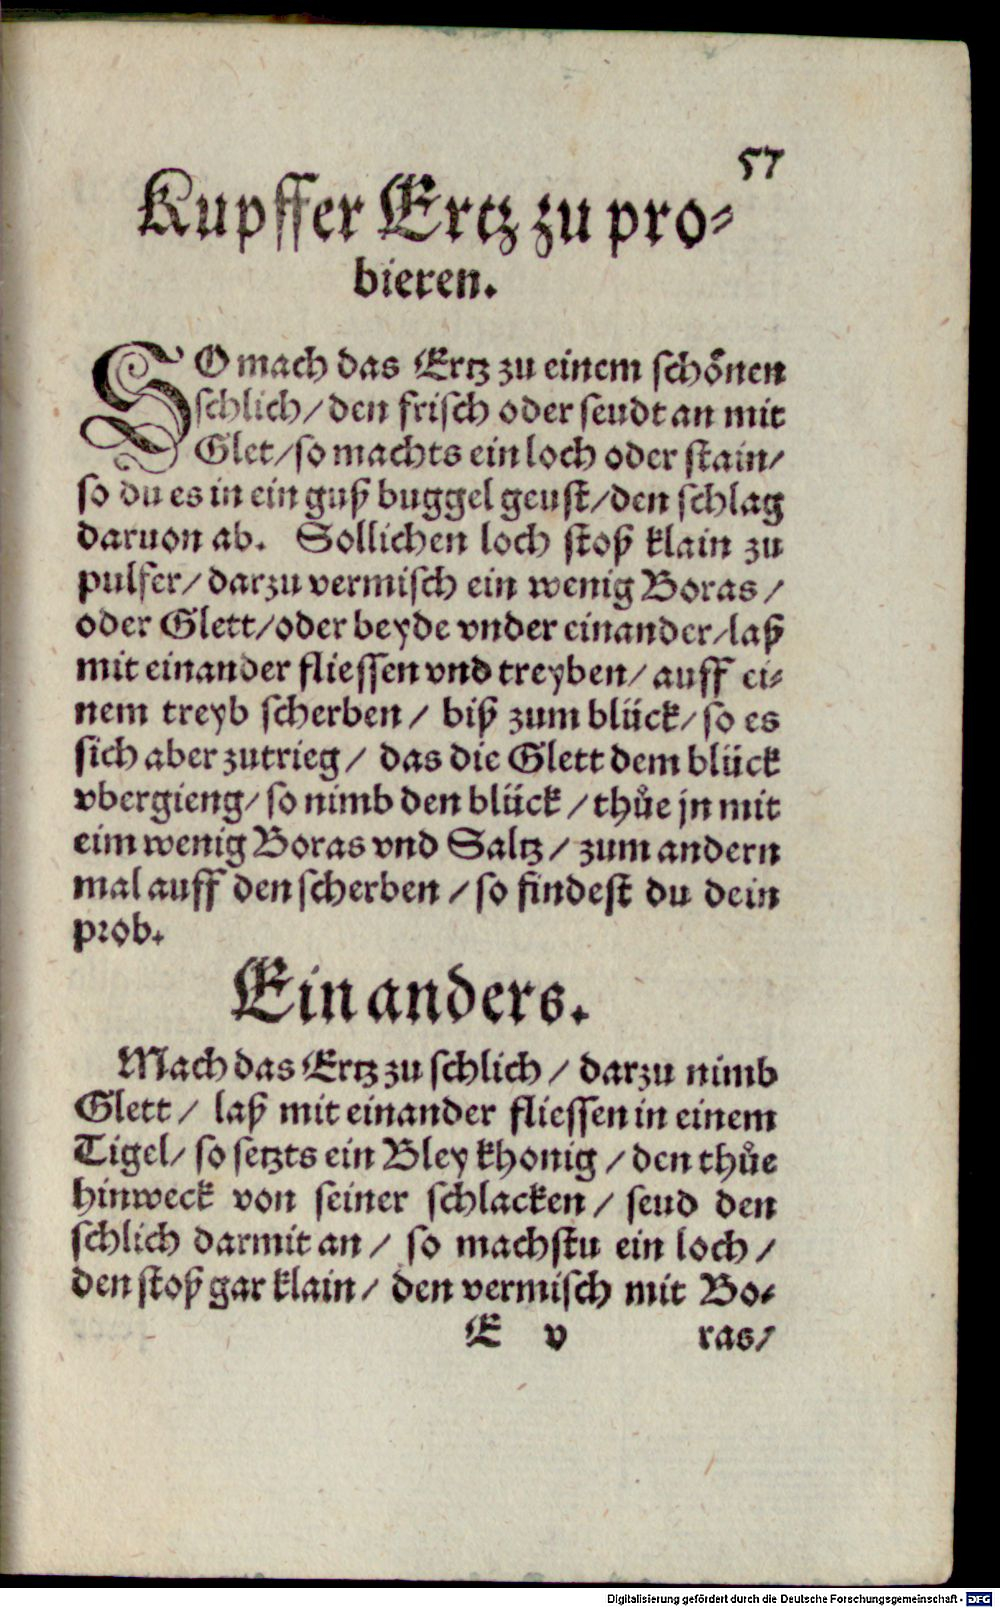 57
Kupffer Ertz zu pro-
bieren.
SO mach das Ertz zu einem schönen
schlich / den frisch oder seudt an mit
Glet / so machts ein loch oder stain /
so du es in ein guß buggel geust / den schlag
daruon ab. Sollichen loch stoß klain zu
pulfer / darzu vermisch ein wenig Boras /
oder Glett / oder beyde vnder einander / laß
mit einander fliessen vnd treyben / auff ei-
nem treyb scherben / biß zum blück / so es
sich aber zutrieg / das die Glett dem blück
vbergieng / so nimb den blück / thůe jn mit
eim wenig Boras vnd Saltz / zum andern
mal auff den scherben / so findest du dein
prob.
Ein anders.
Mach das Ertz zu schlich / darzu nimb
Glett / laß mit einander fliessen in einem
Tigel / so setzts ein Bley khonig / den thůe
hinweck von seiner schlacken / seud den
schlich darmit an / so machstu ein loch /
den stoß gar klain / den vermisch mit Bo-
E v ras /
Digitalisierung gefördert durch die Deutsche Forschungsgemeinschaft - DFG